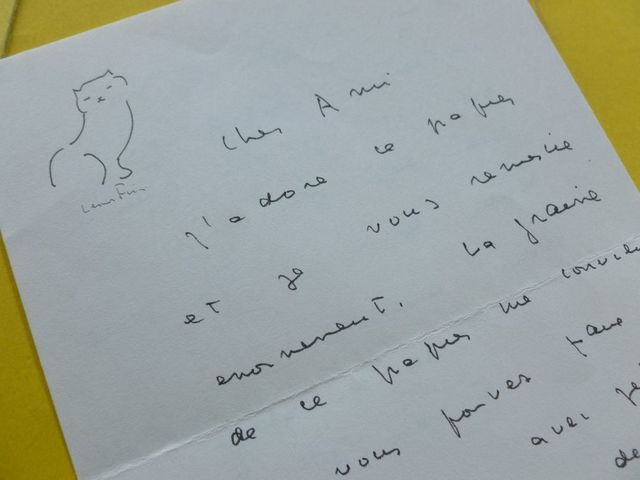 Leonor Fini
Cher Ami
J'adore ce papier
et je vous remercie
enormement. La
de ce papier me
vous pouvez faire
avec
de